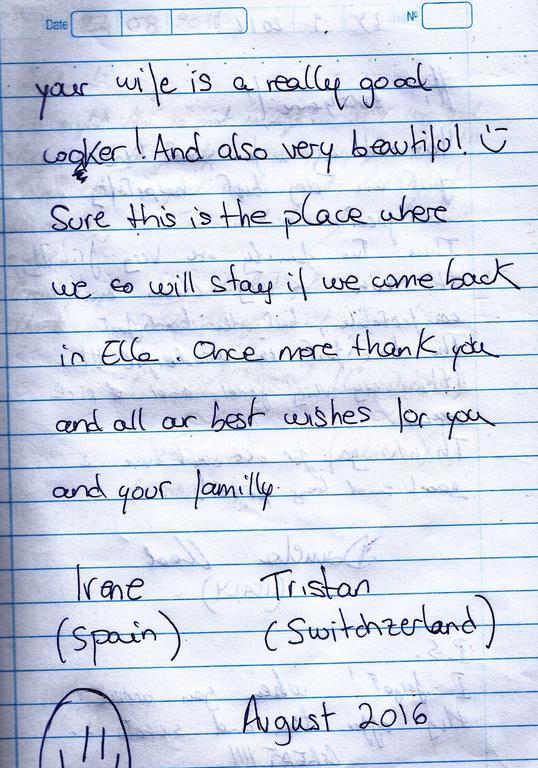 Date
Nº
your wife is a really good
cooker! And also very beautiful!
Sure this is the place where
we will stay if we come back
in Ella. Once more thank you
and all our best wishes for you
and your familly.
Irene Tristan
(Spain) (Switchzerland)
August 2016